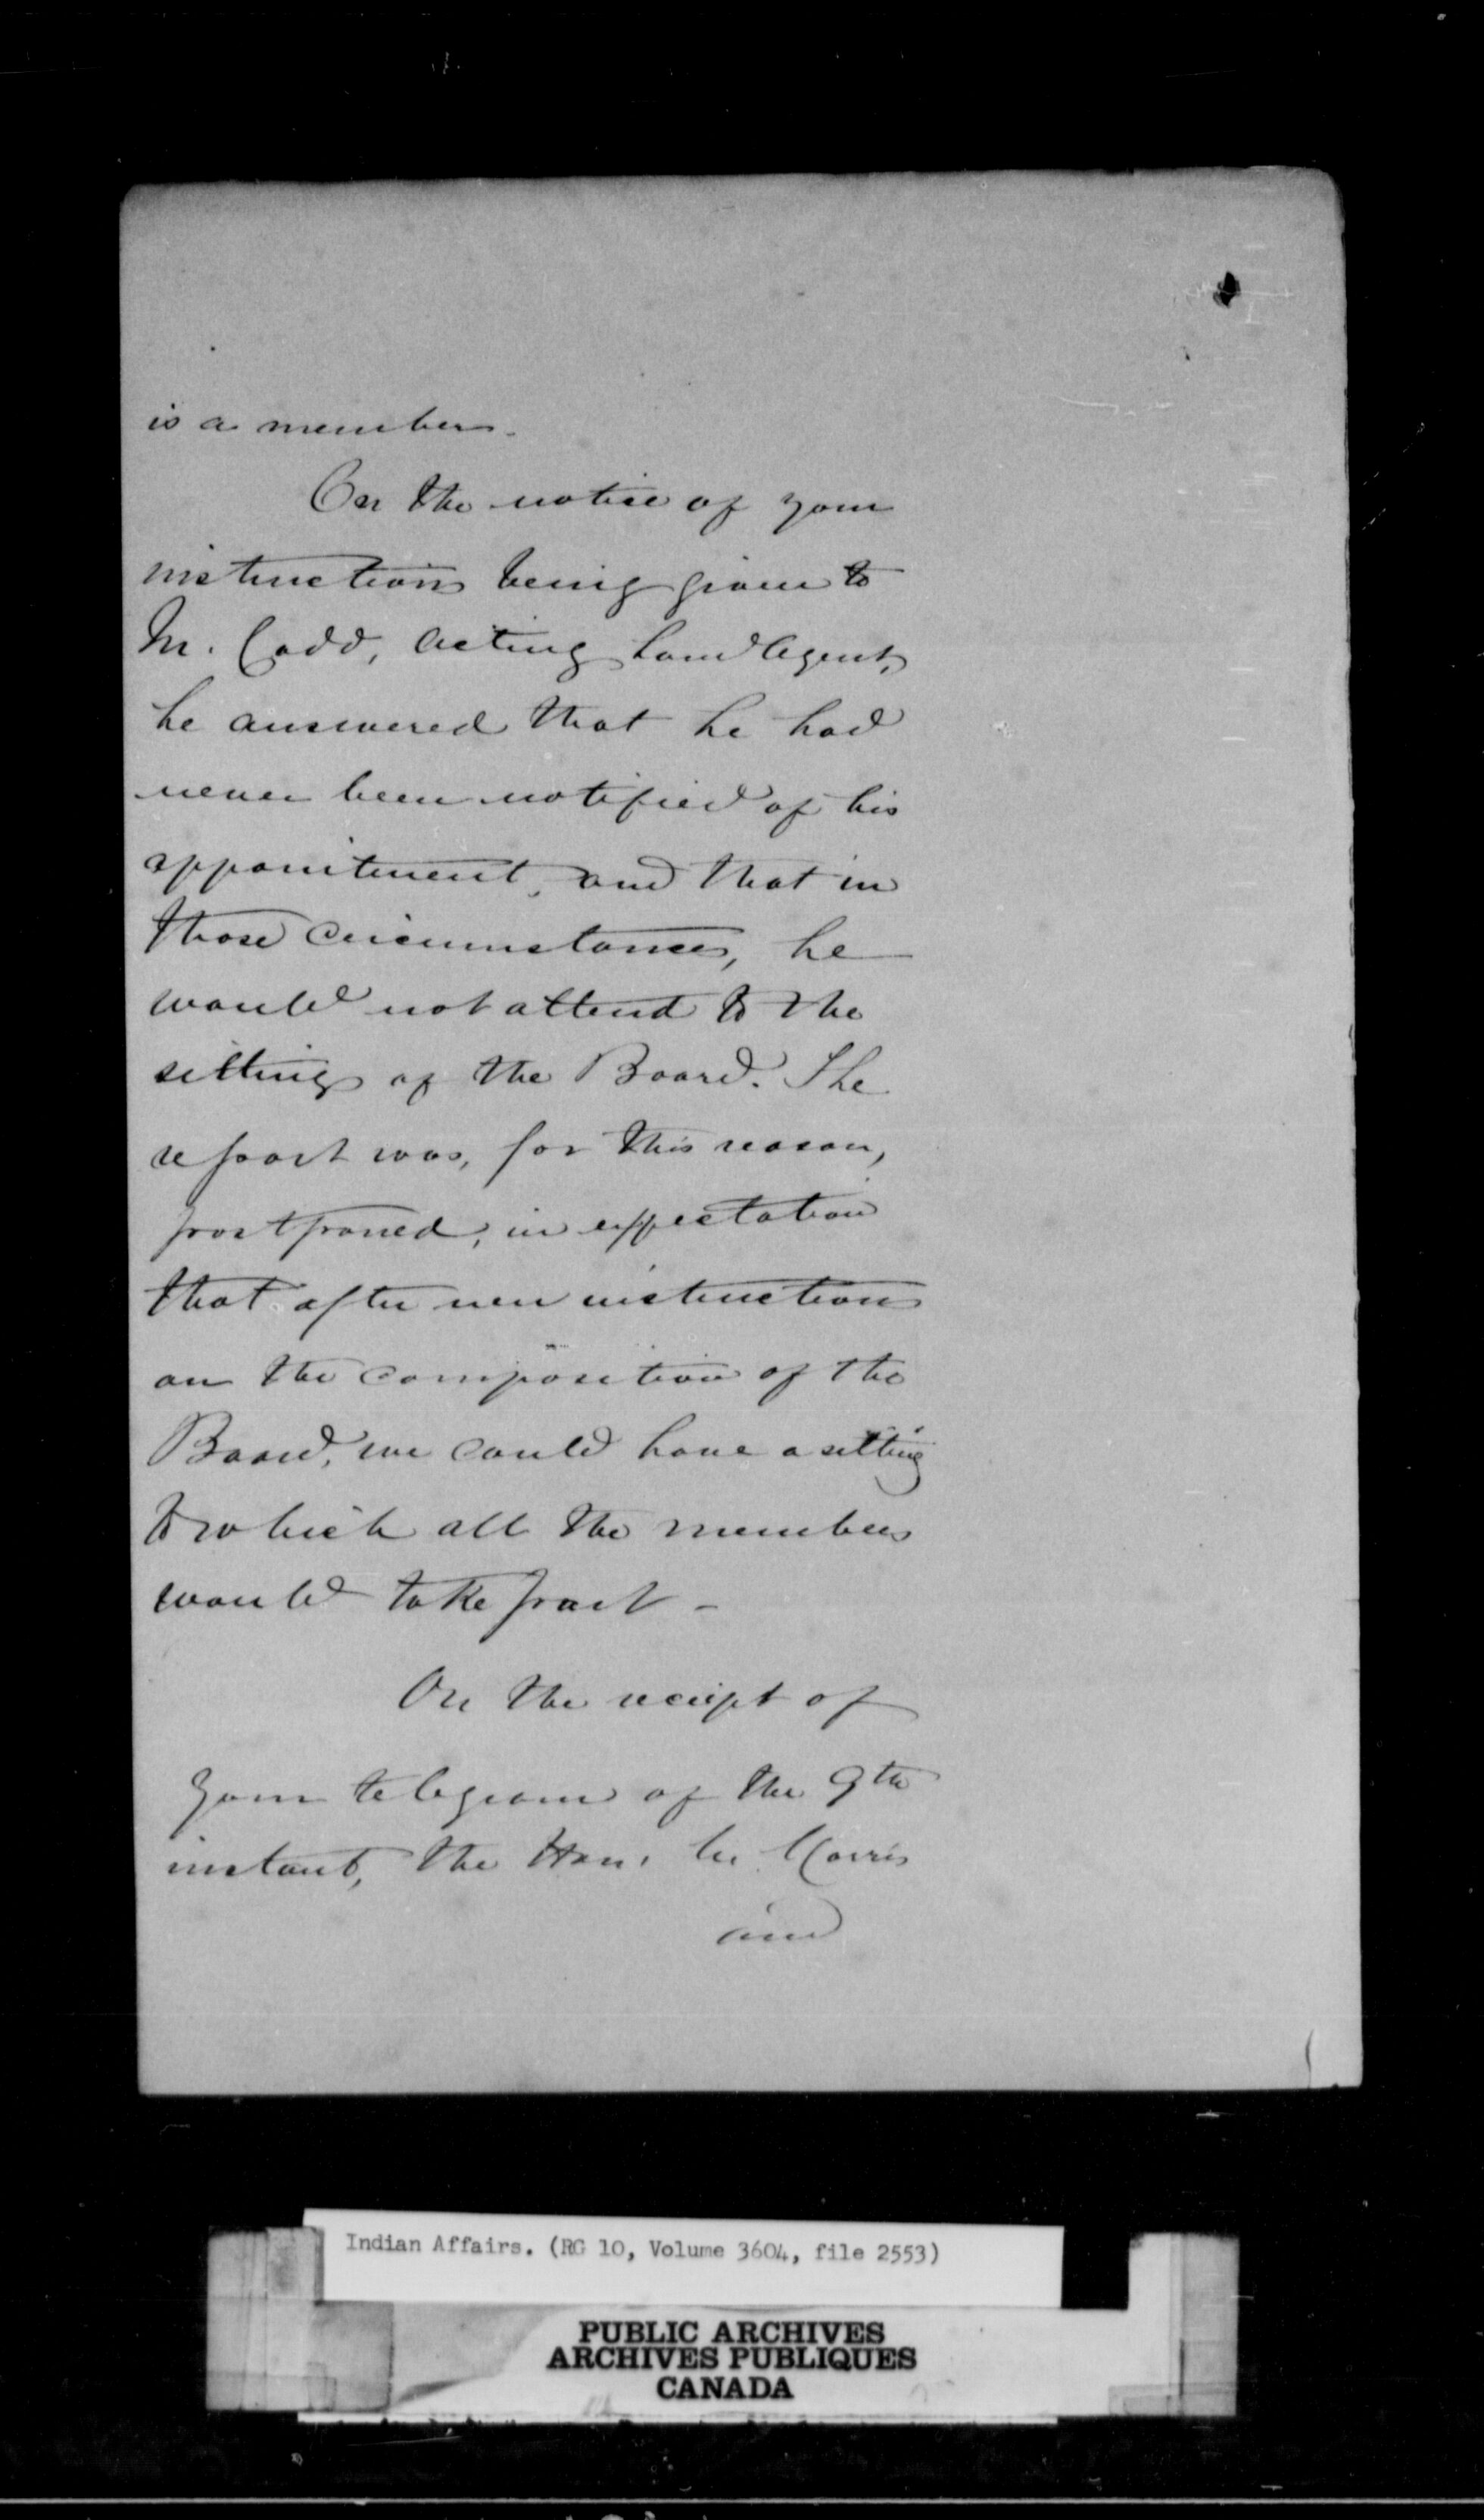 is a member.
On the notice of your
instructions being given to
M. Codd, Acting Land Agent,
he answered that he had
never been notified of his
appointment, and that in
those circumstances, he
would not attend to the
sitting of the Board. The
report was, for this reason,
postponed, in expectation
that after new instructions
on the composition of the
Board, we could have a sitting
to which all the members
would take part -
On the receipt of
your telegram of the 9th
instant, the Hon. Morris
and
Indian Affairs. (RG 10, Volume 3604, file 2553)
PUBLIC ARCHIVES
ARCHIVES PUBLIQUES
CANADA